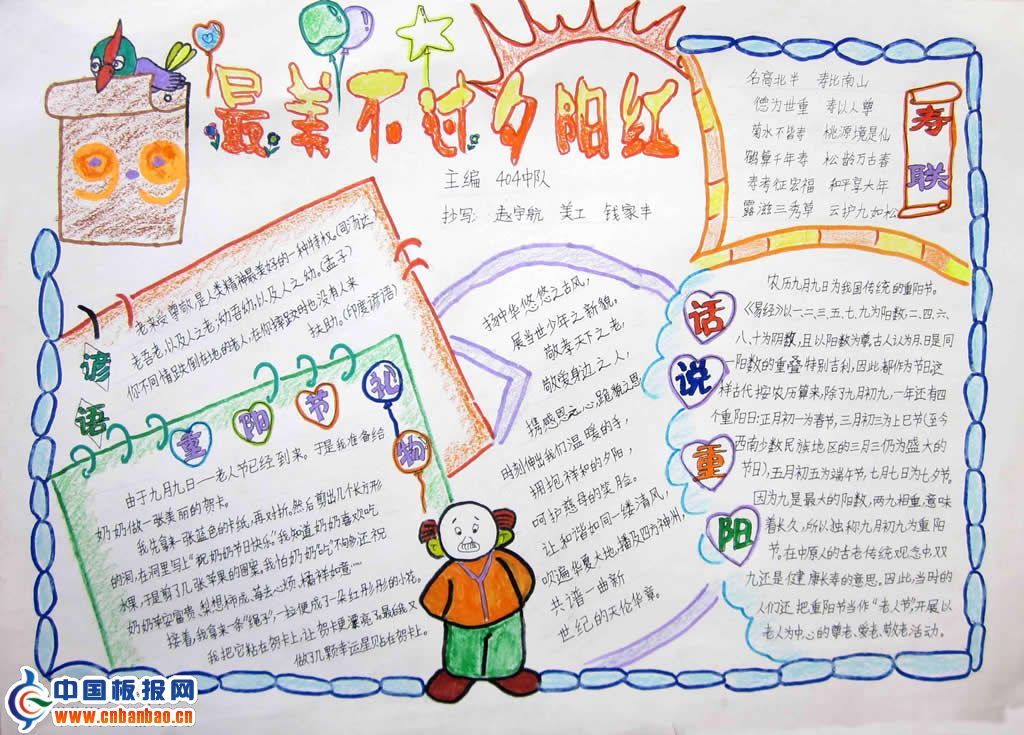 最美不过夕阳红
主编 404中队
抄写: 赵宇航 美工 钱家丰
99
寿联
名高北斗 寿比南山
德为世重 寿以人尊
菊水不皆寿 桃源境是仙
鹤算千年寿 松龄万古春
寿考征宏福 和平享大年
露滋三秀草 云护九如松
谚语
老来受尊敬,是人类精神最美好的一种特权。(司汤达
老吾老,以及人之老;幼吾幼,以及人之幼。(孟子)
你不同情跌倒在地的老人,在你摔跤时也没有人来
扶助。(印度谚语)
重阳节礼物
由于九月九日——老人节已经到来。于是我准备给
奶奶做一张美丽的贺卡。
我先拿来一张蓝色的卡纸,再对折。然后剪出几个长方形
的洞,在洞里写上“祝奶奶节日快乐。”我知道奶奶喜欢吃
水果,于是剪了几张苹果的图案。我怕奶奶吃不够多还祝
奶奶苹安富贵、梨想柿成、莓去心烦、橘祥如意……
接着,我拿来一条“绳子”,一拉便成了一朵红彤彤的小花。
我把它粘在贺卡上,让贺卡更漂亮了。最后,我又
做了几颗幸运星贴在贺卡上。
扬中华悠悠之古风,
展当世少年之新貌。
敬孝天下之老,
敬爱身边之人,
携感恩之心,随貌之恩
时刻伸出我们温暖的手,
拥抱祥和的夕阳,
呵护慈母的笑脸。
让和谐如同一缕清风,
吹遍华夏大地,播及四方神州,
共谱一曲新
世纪的天伦华章。
话说重阳
农历九月九日为我国传统的重阳节。
《易经》以一、二、三、五、七、九为阳数,二、四、六、
八、十为阴数,且以阳数为尊古人认为月日是同
一阳数的重叠特别吉利,因此都作为节日这
样古代按农历算来,除了九月初九,一年还有四
个重阳日:正月初一为春节,三月初三为上巳节(至今
西南少数民族地区的三月三仍为盛大的
节日),五月初五为端午节,七月七日为七夕节。
因为九是最大的阳数,两九相重,意味
着长久,所以独称九月初九为重阳
节。在中原人的古老传统观念中,双
九还是健康长寿的意思。因此,当时的
人们还把重阳节当作“老人节”,开展以
老人为中心的尊老、爱老、敬老活动。
中国板报网
www.cnbanbao.cn